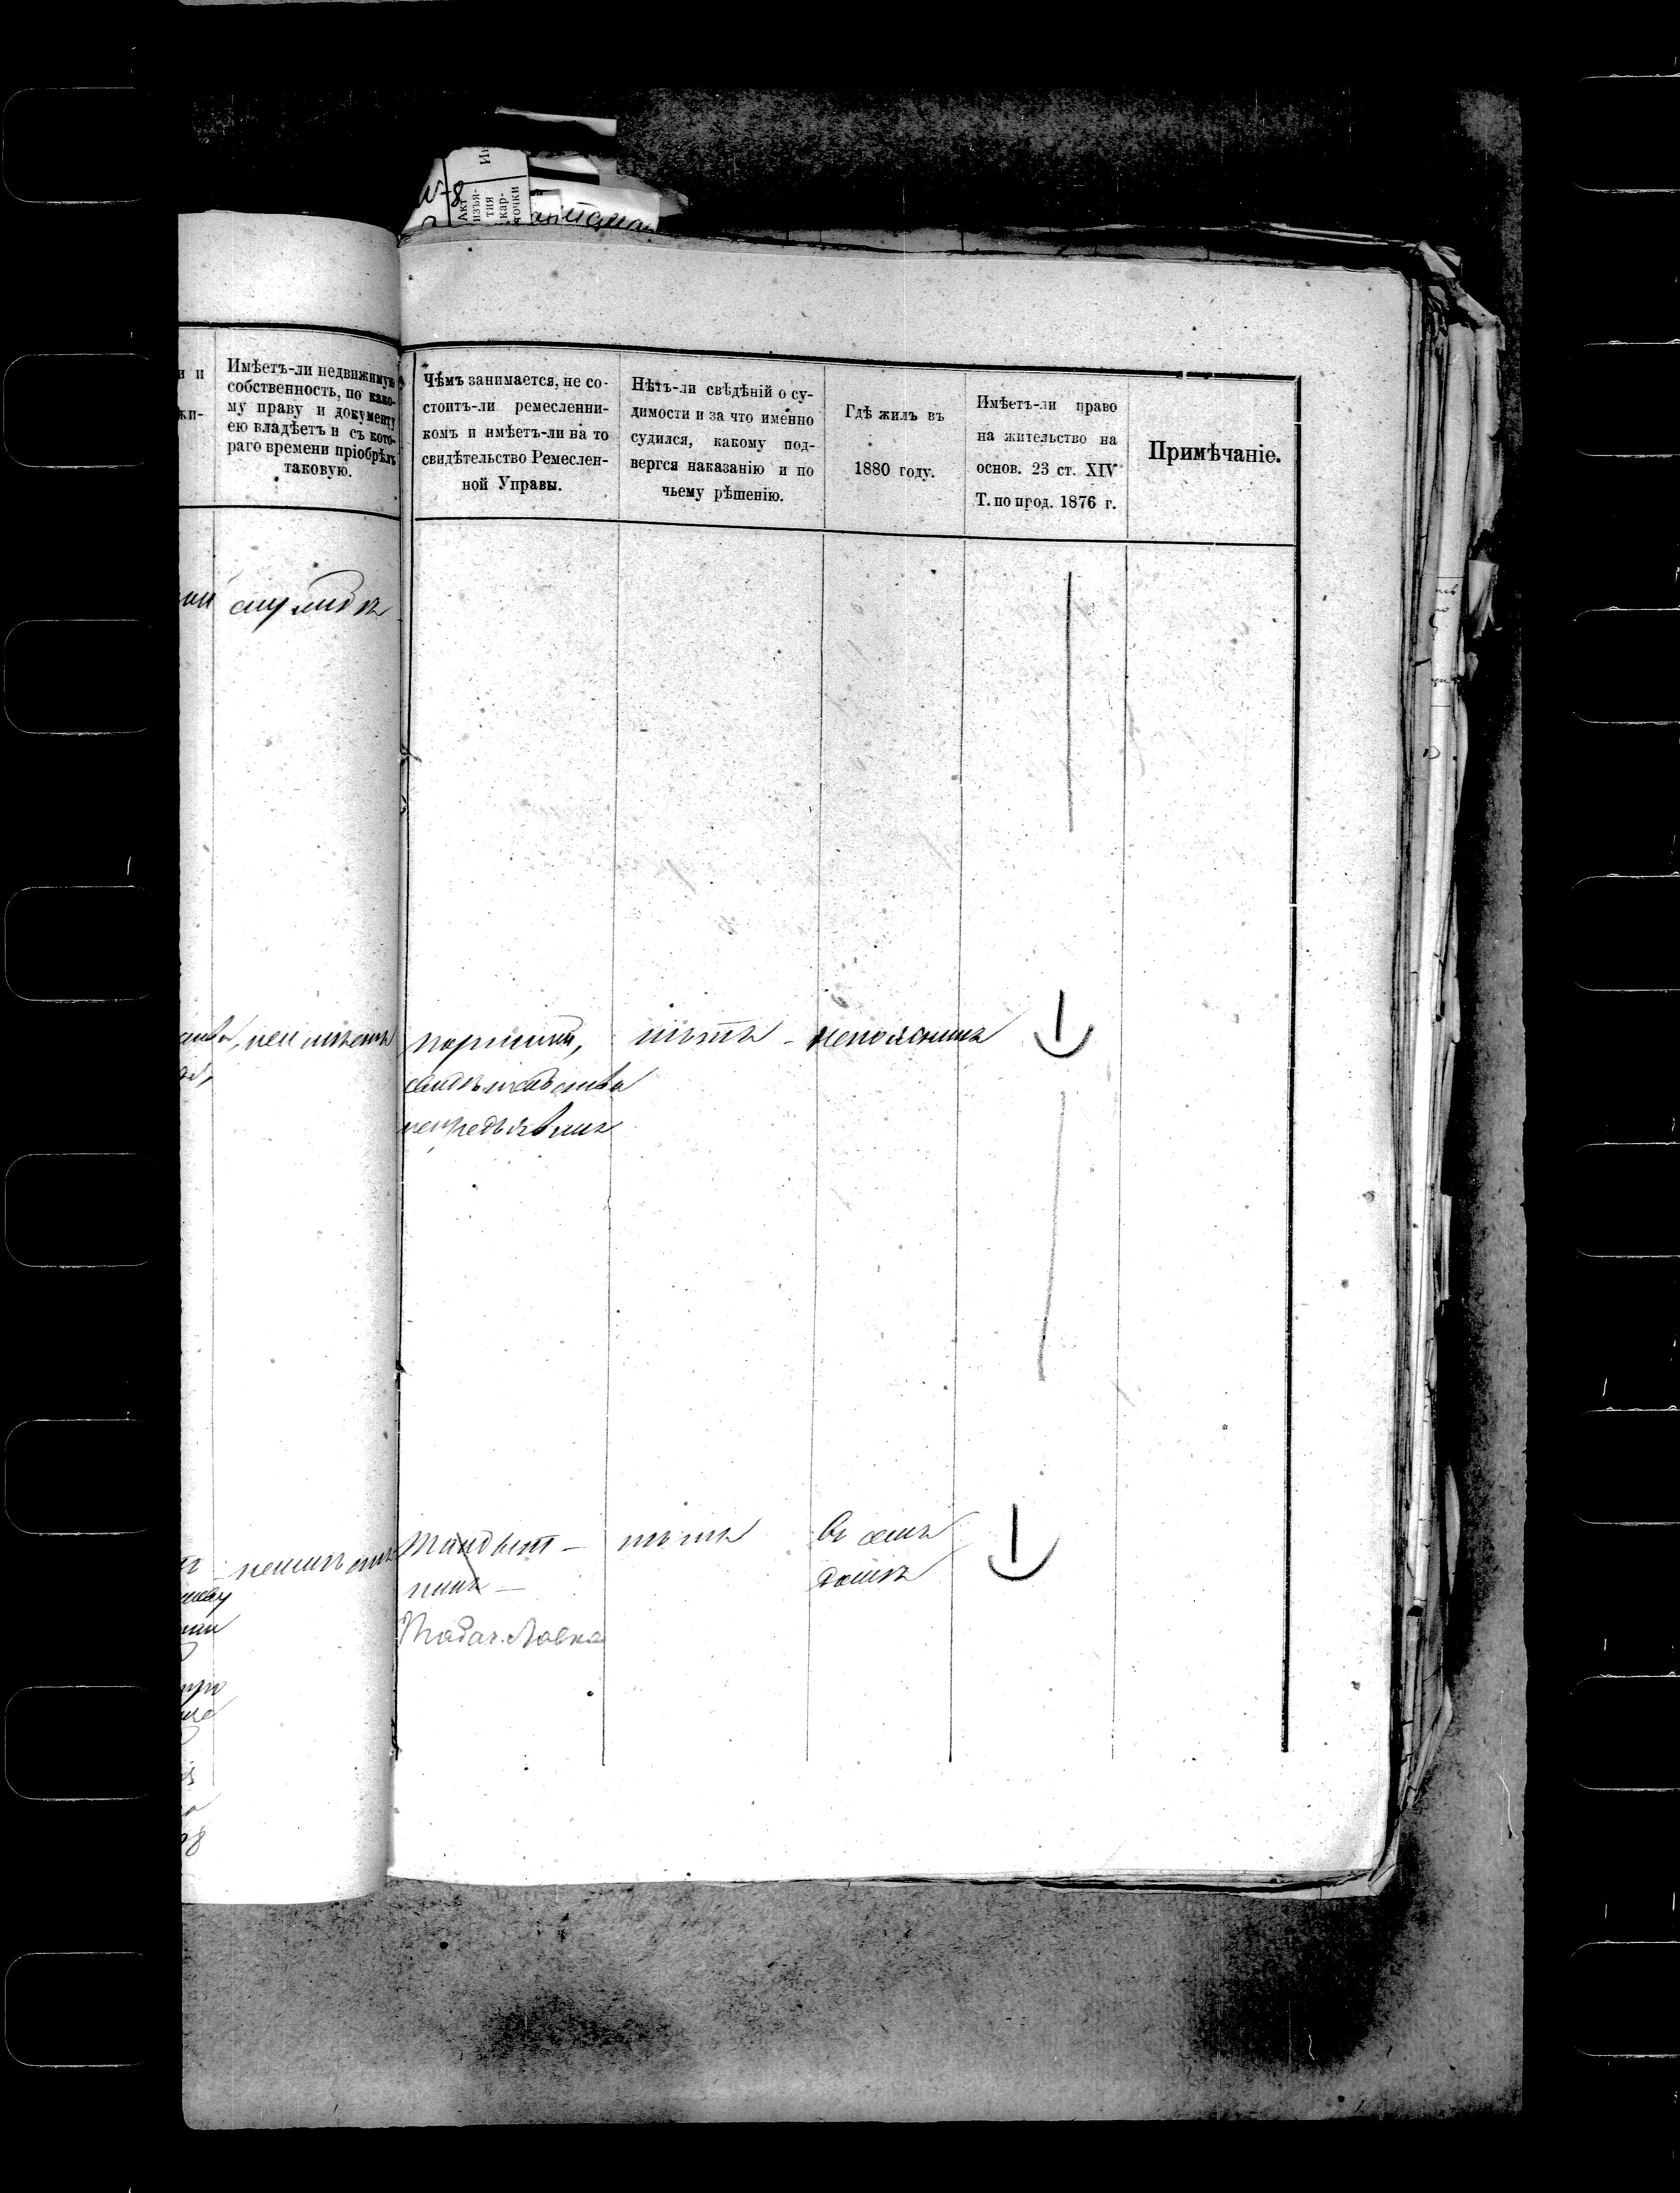 №8
Акт
изъя-
тия
кар-
точки
и и
жи-
Имѣетъ-ли недвижимую
собственность, по како-
му праву и документу
ею владѣетъ и съ кото-
раго времени пріобрѣлъ
таковую.
Чѣмъ занимается, не со-
стоитъ-ли ремесленни-
комъ и имѣетъ-ли на то
свидѣтельство Ремеслен-
ной Управы.
Нѣтъ-ли свѣдѣній о су-
димости и за что именно
судился, какому под-
вергся наказанію и по
чьему рѣшенію.
Гдѣ жилъ въ
1880 году.
Имѣетъ-ли право
на жительство на
основ. 23 ст. XIV
Т. по прод. 1876 г.
Примѣчаніе.
неимѣетъ
портной,
свидѣтельства
непредъявилъ
нѣтъ
непояснилъ
неимѣетъ
нѣтъ
въ семъ
домѣ
Табач. Лавка